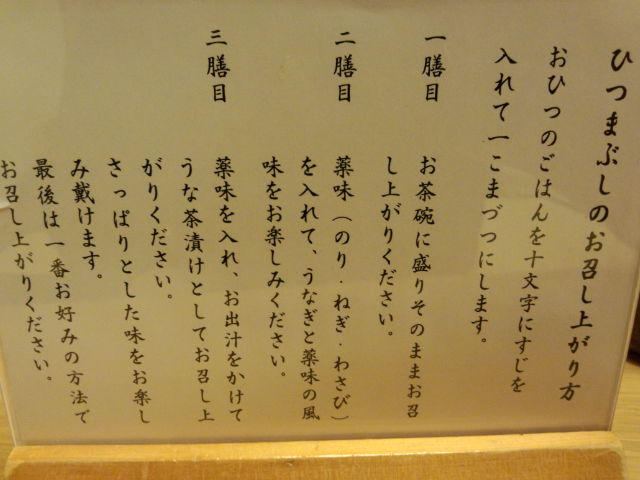 ひつまぶしのお召し上がり方
おひつのごはんを十文字にすじを
入れて一こまづつにします。
一膳目
お茶碗に盛りそのままお召
し上がりください。
二膳目
薬味（のり・ねぎ・わさび）
を入れて、うなぎと薬味の風
味をお楽しみください。
三膳目
薬味を入れ、お出汁をかけて
うな茶漬けとしてお召し上
がりください。
さっぱりとした味をお楽し
み戴けます。
最後は一番お好みの方法で
お召し上がりください。